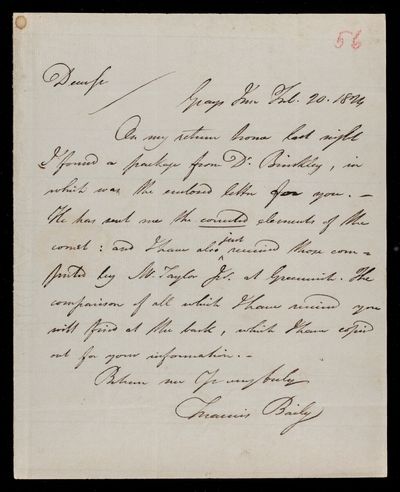 56
Dear Sir
Grays Inn Feb. 20. 1824
On my return home last night
I found a package from Dr. Brinkley, in
which was the enclosed letter for you. –
He has sent me the corrected elements of the
comet: and I have also just received those com=
puted by Mr Taylor Jr. at Greenwich. The
comparison of all which I have received you
will find at the back, which I have copied
out for your information. –
Believe me Yrs very truly
Francis Baily